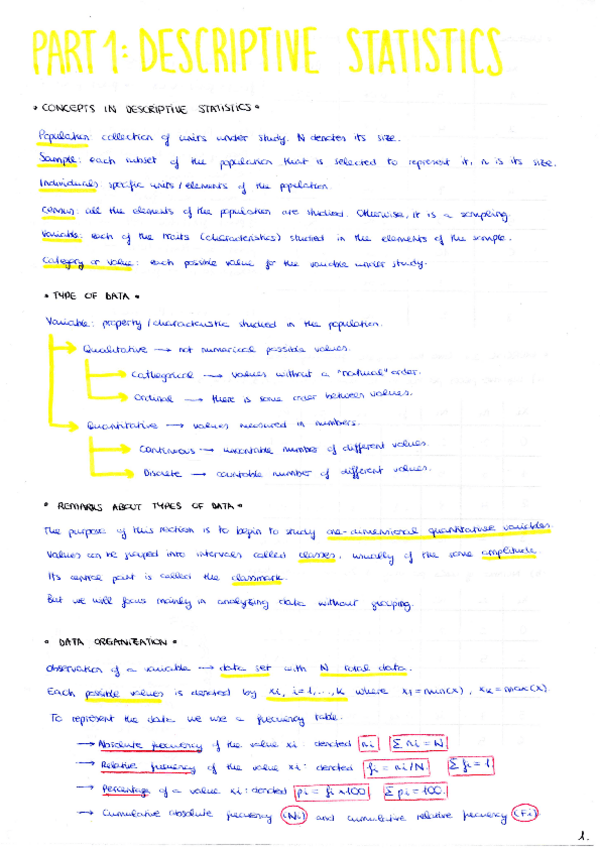 PART 1: DESCRIPTIVE STATISTICS
• CONCEPTS IN DESCRIPTIVE STATISTICS •
Population: collection of units under study. N denotes its size.
Sample: each subset of the population that is selected to represent it, n is its size.
Individuals: specific units/elements of the population.
Census: all the elements of the population are studied. Otherwise, it is a sampling.
Variable: each of the traits (characteristics) studied in the elements of the sample.
Category or value: each possible value for the variable under study.
• TYPE OF DATA •
Variable: property/characteristic studied in the population.
Qualitative → not numerical possible values.
Cathegorical → values without a "natural" order.
Ordinal → there is some order between values.
Quantitative → values measured in numbers.
Continuous → uncountable number of different values.
Discrete → countable number of different values.
• REMARKS ABOUT TYPES OF DATA •
The purpose of this section is to begin to study one-dimensional quantitative variables.
Values can be grouped into intervals called classes, usually of the same amplitude.
Its central part is called the classmark.
But we will focus mainly in analyzing data without grouping.
• DATA ORGANIZATION •
Observation of a variable → data set with N total data.
Each possible values is denoted by xi, i=1,...,k where x1=min(x), xk=max(x).
To represent the data we use a frecuency table.
→ Absolute frecuency of the value xi: denoted ni Σni=N
→ Relative frecuency of the value xi: denoted fi=ni/N. Σfi=1
→ Percentage of a value xi: denoted pi=fi×100 Σpi=100.
→ Cumulative absolute frecuency (Ni) and cumulative relative frecuency (Fi).
1.